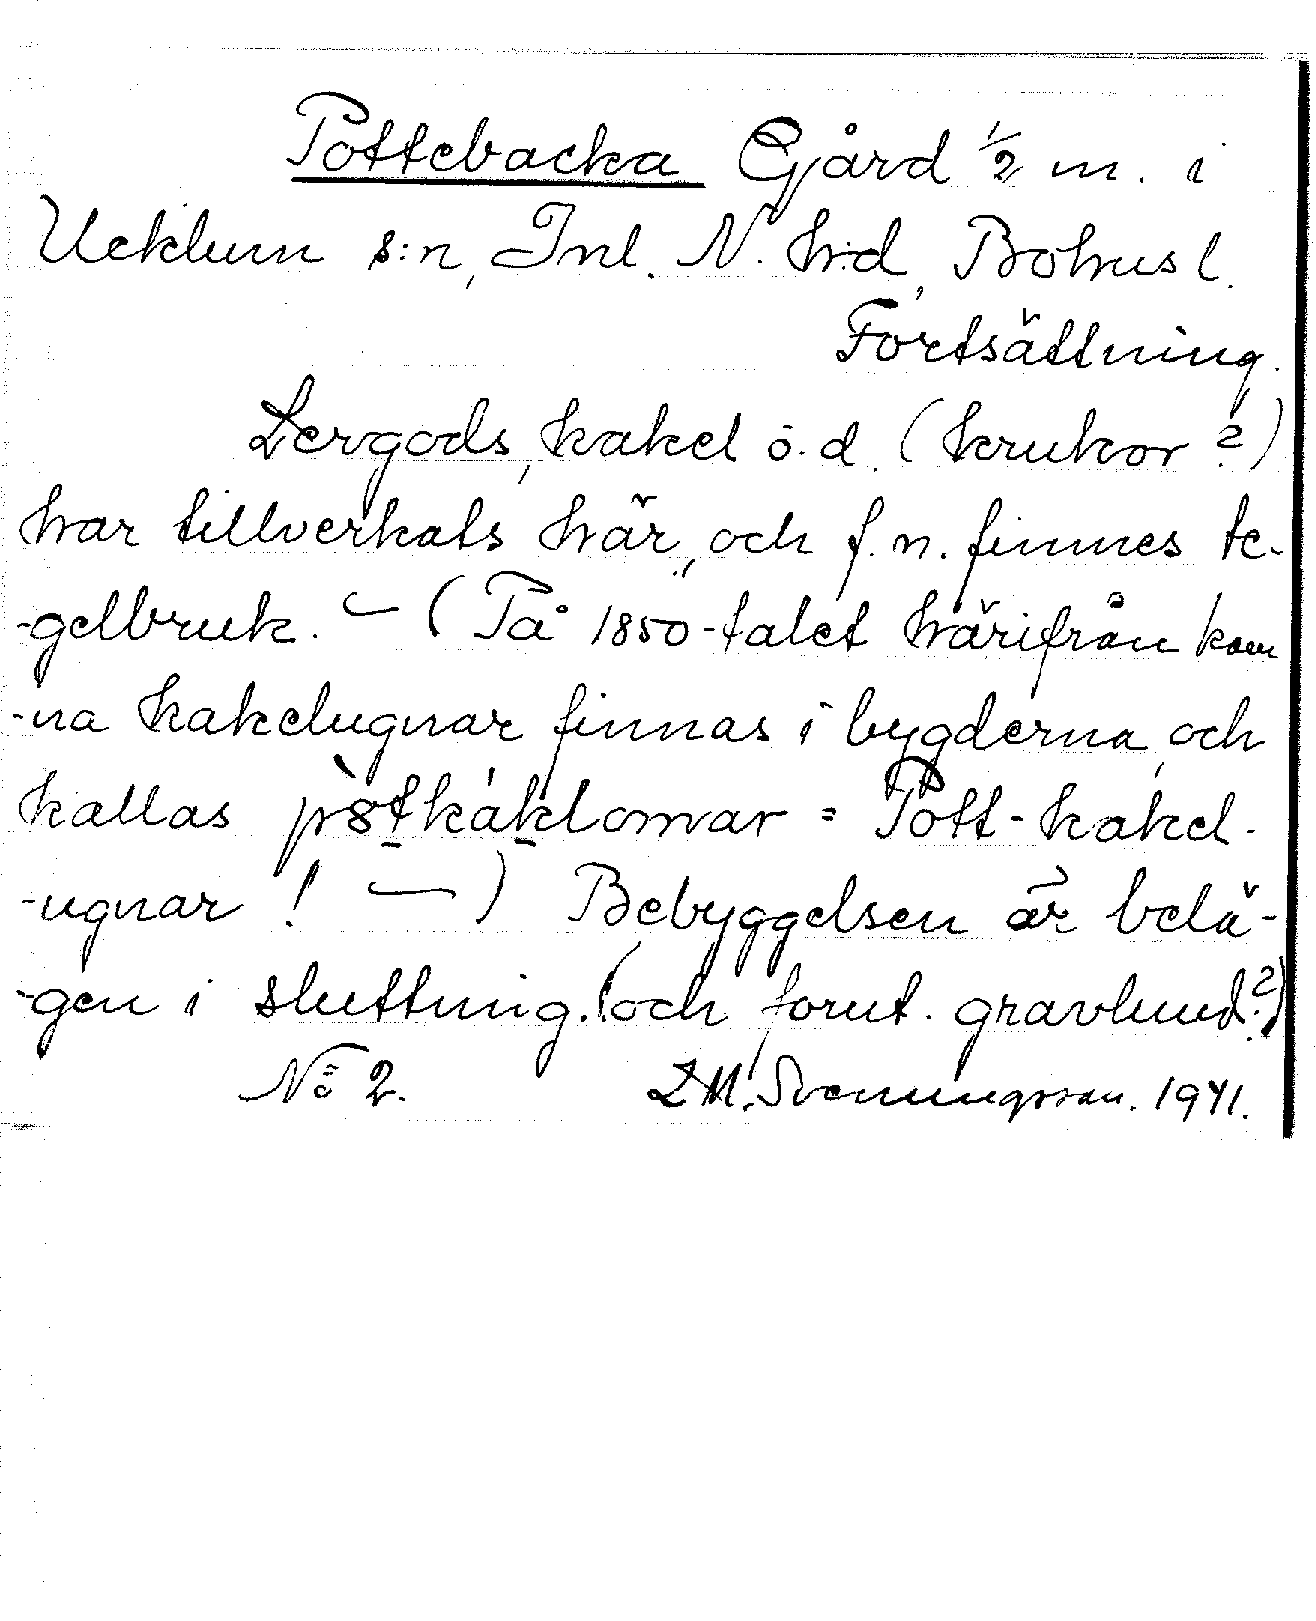 Pottebacka Gård 1/2 m. i
Ucklum s:n, Inl. N. h:d, Bohusl.
Fortsättning.
Lergods, kakel o.d. (krukor?)
har tillverkats här, och f.n. finnes te-
-gelbruk. — (På 1850-talet härifrån kom
-na kakelugnar finnas i bygderna, och
kallas = Pott-kakel-
-ugnar! —) Bebyggelsen är belä-
-gen i sluttning. (och forut. gravlund?)
No 2. Svenungsson. 1941.